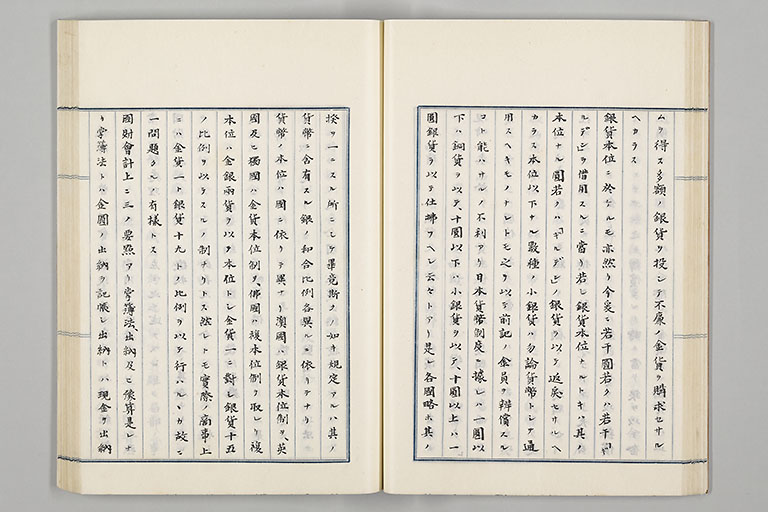 ムヲ得ス多額ノ銀貨ヲ投シテ不廉ノ金貨ヲ購求セサル
ヘカラス
銀貨本位ニ於ケルモ亦然リ今爰ニ若干圓若クハ若干「ギ
ルデン」ヲ借用スルニ當リ若シ銀貨本位
本位ナル圓若クハ「ギルデン」ノ銀貨ヲ以テ返戻セサルヘ
カラス本位以下ナル数種ノ小銀貨ハ勿論貨幣トシテ通
用スヘキモノナレトモ之ヲ以テ前記ノ金員ヲ辨償スル
コト能ハサルノ不利アリ日本貨幣制度ニ據レハ一圓以
下ハ銅貨ヲ以テ、十圓以下ハ小銀貨ヲ以テ、十圓以上ハ一
圓銀貨ヲ以テ仕拂フヘシ云々トアリ是レ各國略ホ其ノ
揆ヲ一ニスル所ニシテ畢竟斯クノ如キ規定アルハ其ノ
貨幣ニ含有スル銀ノ和合比例各異ルニ依リテナリ
貨幣ノ本位ハ國ニ依リテ異ナリ澳國ハ銀貨本位制ヲ、英
國及ヒ獨國ハ金貨本位制ヲ、佛國ハ複本位制ヲ取レリ複
本位ハ金銀兩貨ヲ以テ本位トシ金貨一ニ對シ銀貨十五
ノ比例ヲ以テスルノ制ナリトス然レトモ實際ノ商事上
ニハ金貨一ト銀貨十九トノ比例ヲ以テ行ハルヽカ故ニ
一問題タルノ有樣トス
國財會計上ニ三ノ要點アリ掌簿法、出納及ヒ豫算是レナ
リ掌簿法トハ金圓ノ出納ヲ記帳シ出納トハ現金ヲ出納